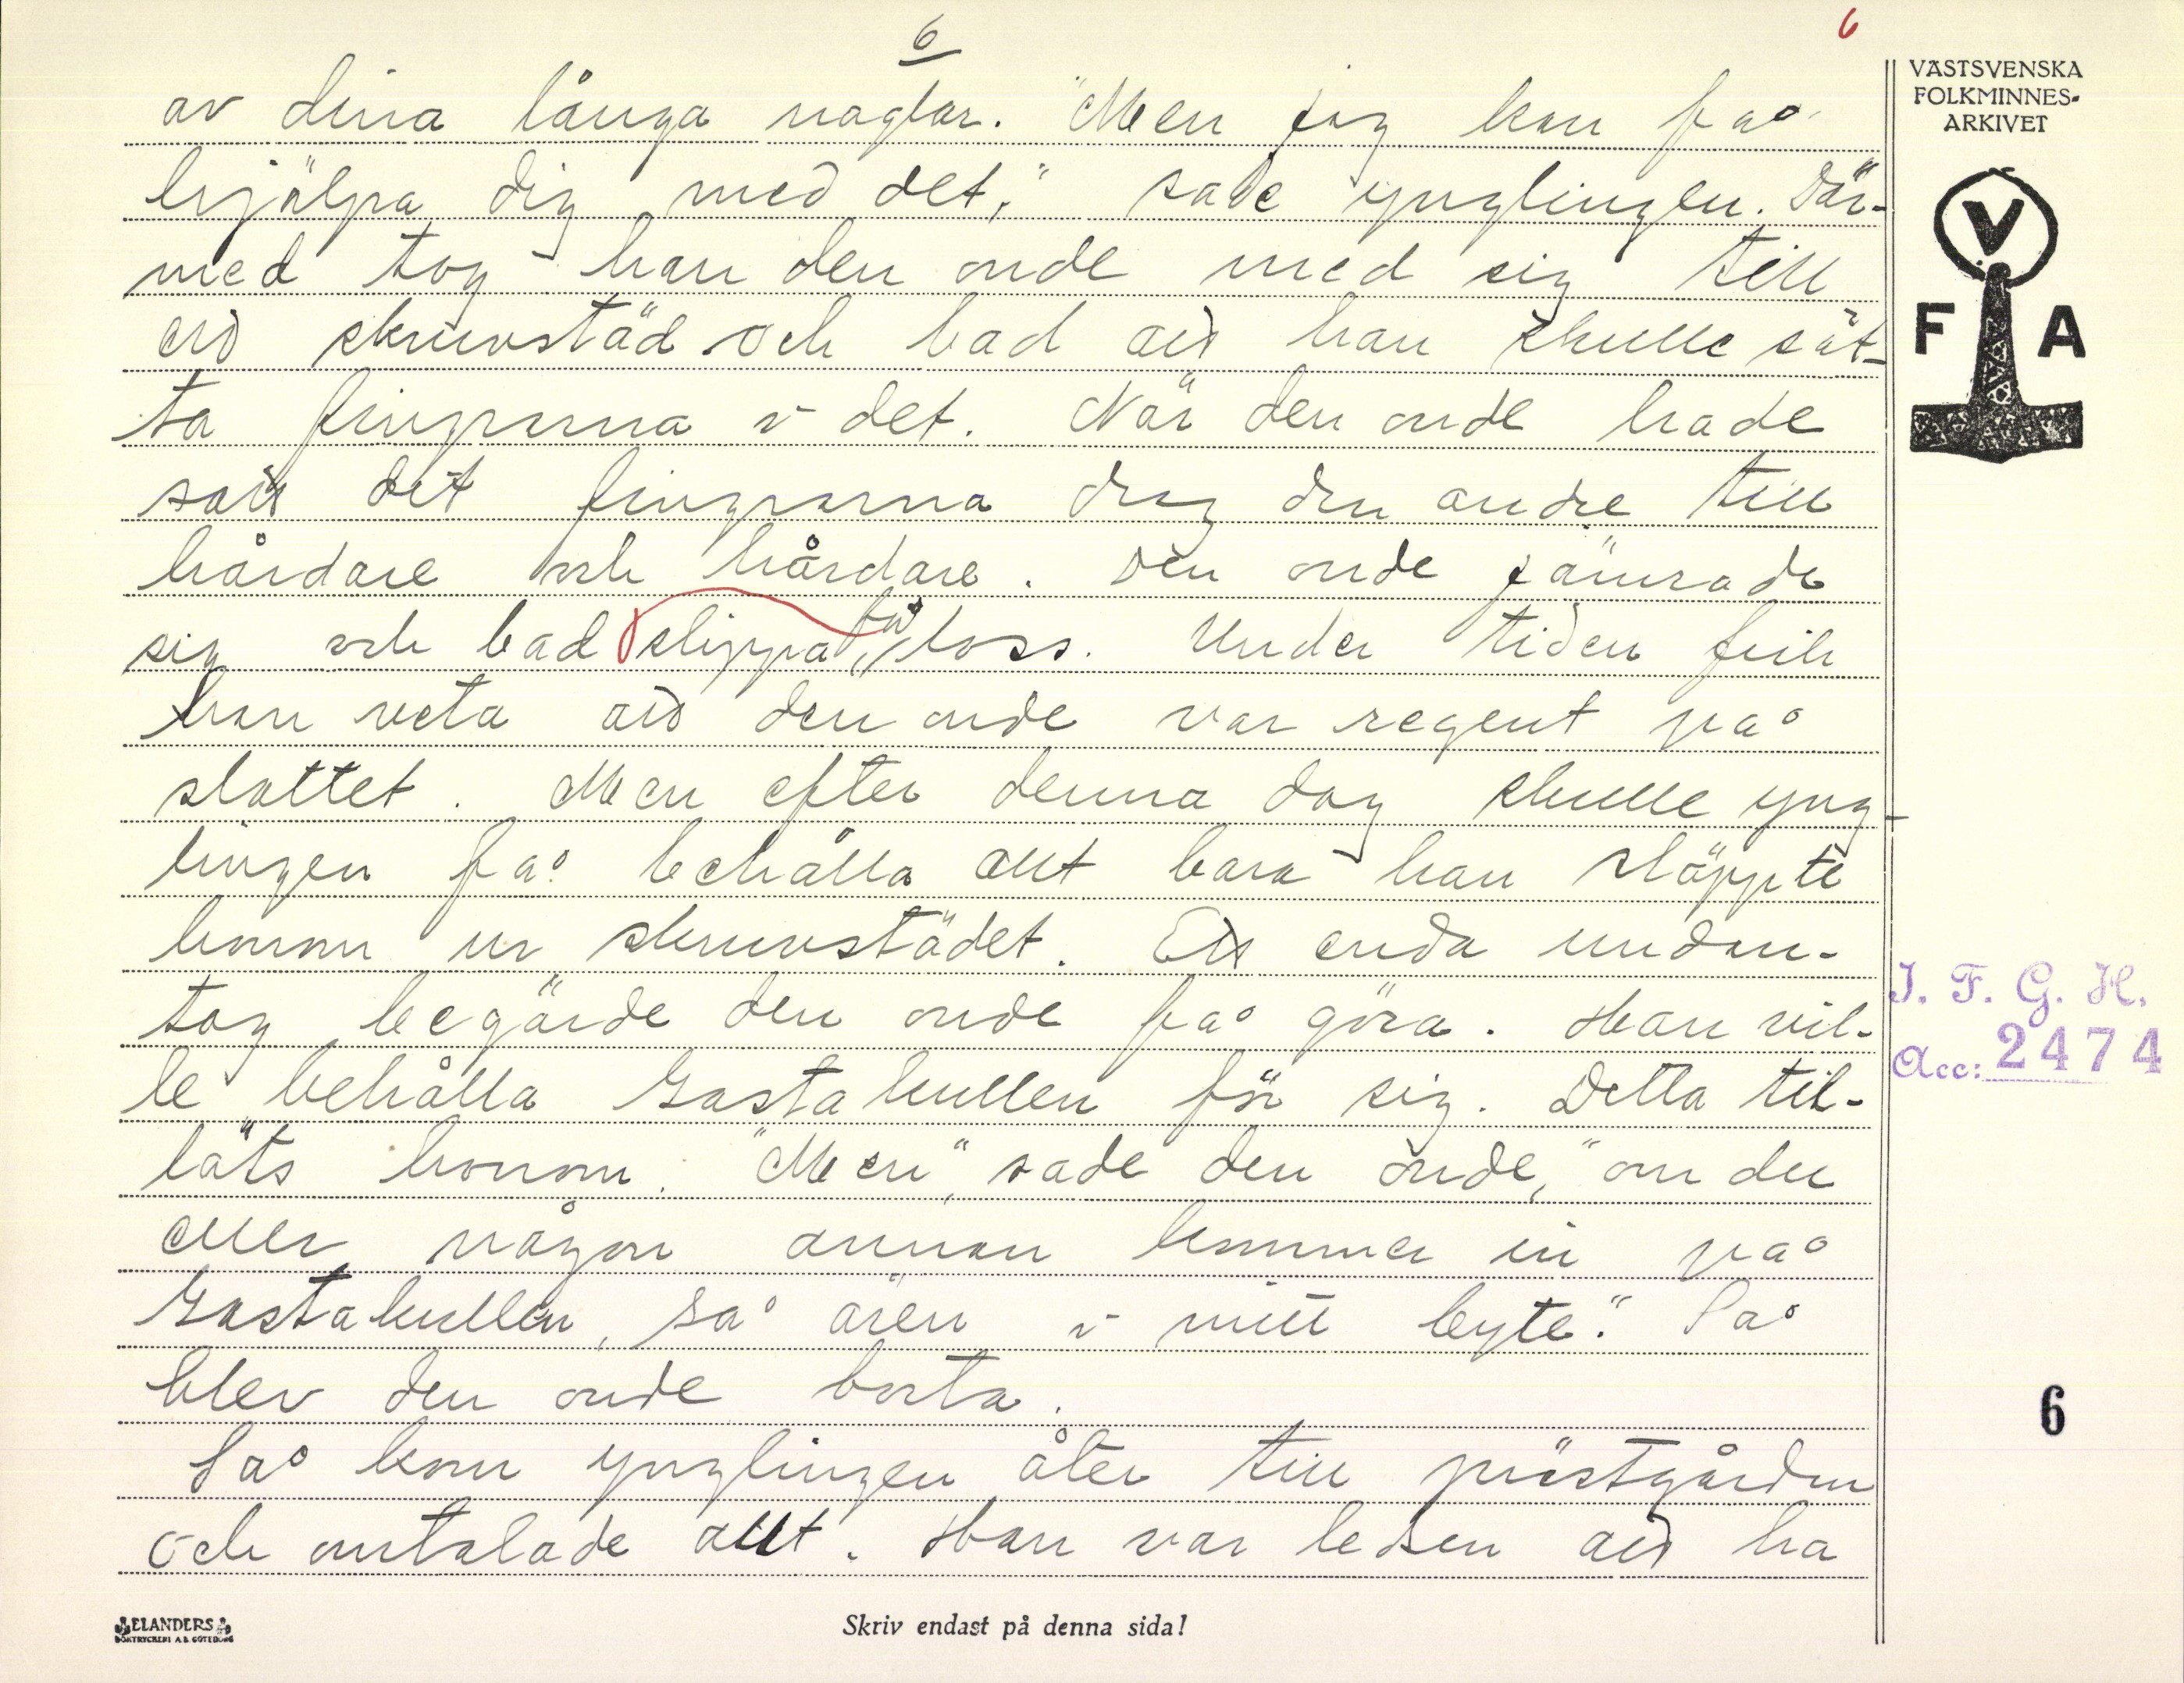 6
6
av dina långa naglar. "Men jag kan få
hjälpa dig med det," sade ynglingen. Där-
med tog han den onde med sig till
ett skruvstäd och bad att han skulle sät-
ta fingrarna i det. När den onde hade
satt dit fingrarna drog den andre till
hårdare och hårdare. Den onde jämrade
sig och bad slippa få loss. Under tiden fick
han veta att den onde var regent på
slottet. Men efter denna dag skulle yng-
lingen få behålla allt bara han släppte
honom ur skruvstädet. Ett enda undan-
tag begärde den onde få göra. Han vil-
le behålla Gastakullen för sig. Detta til-
läts honom. "Men", sade den onde, "om du
eller någon annan kommer in på
Gastakullen, så ären i mitt byte." Så
blev den onde borta.
Så kom ynglingen åter till prästgården
och omtalade allt. Han var ledsen att ha
VÄSTSVENSKA
FOLKMINNES-
ARKIVET
V
F A
I. F. G. H.
Acc: 2474
6
ELANDERS
BOKTRYCKERI A.B. GÖTEBORG
Skriv endast på denna sida!